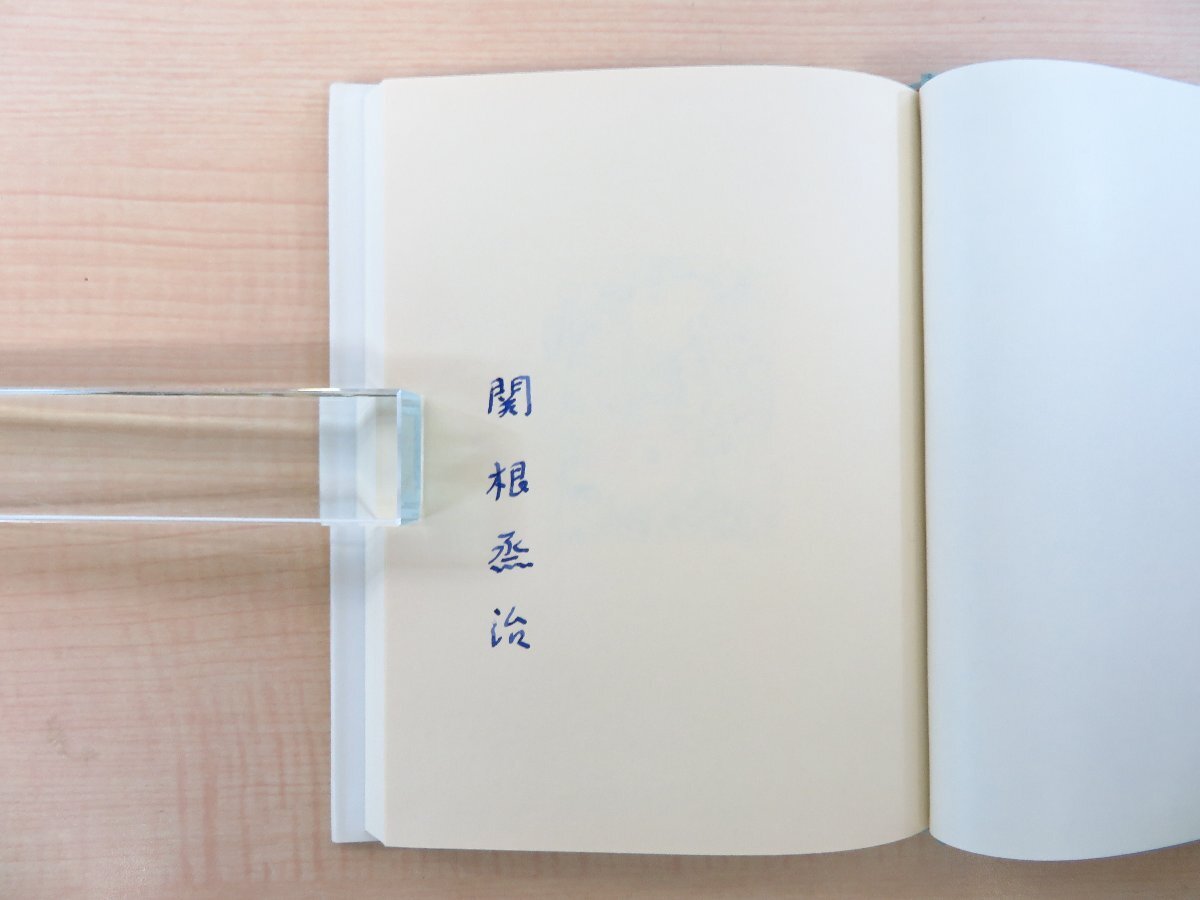 関根烝治